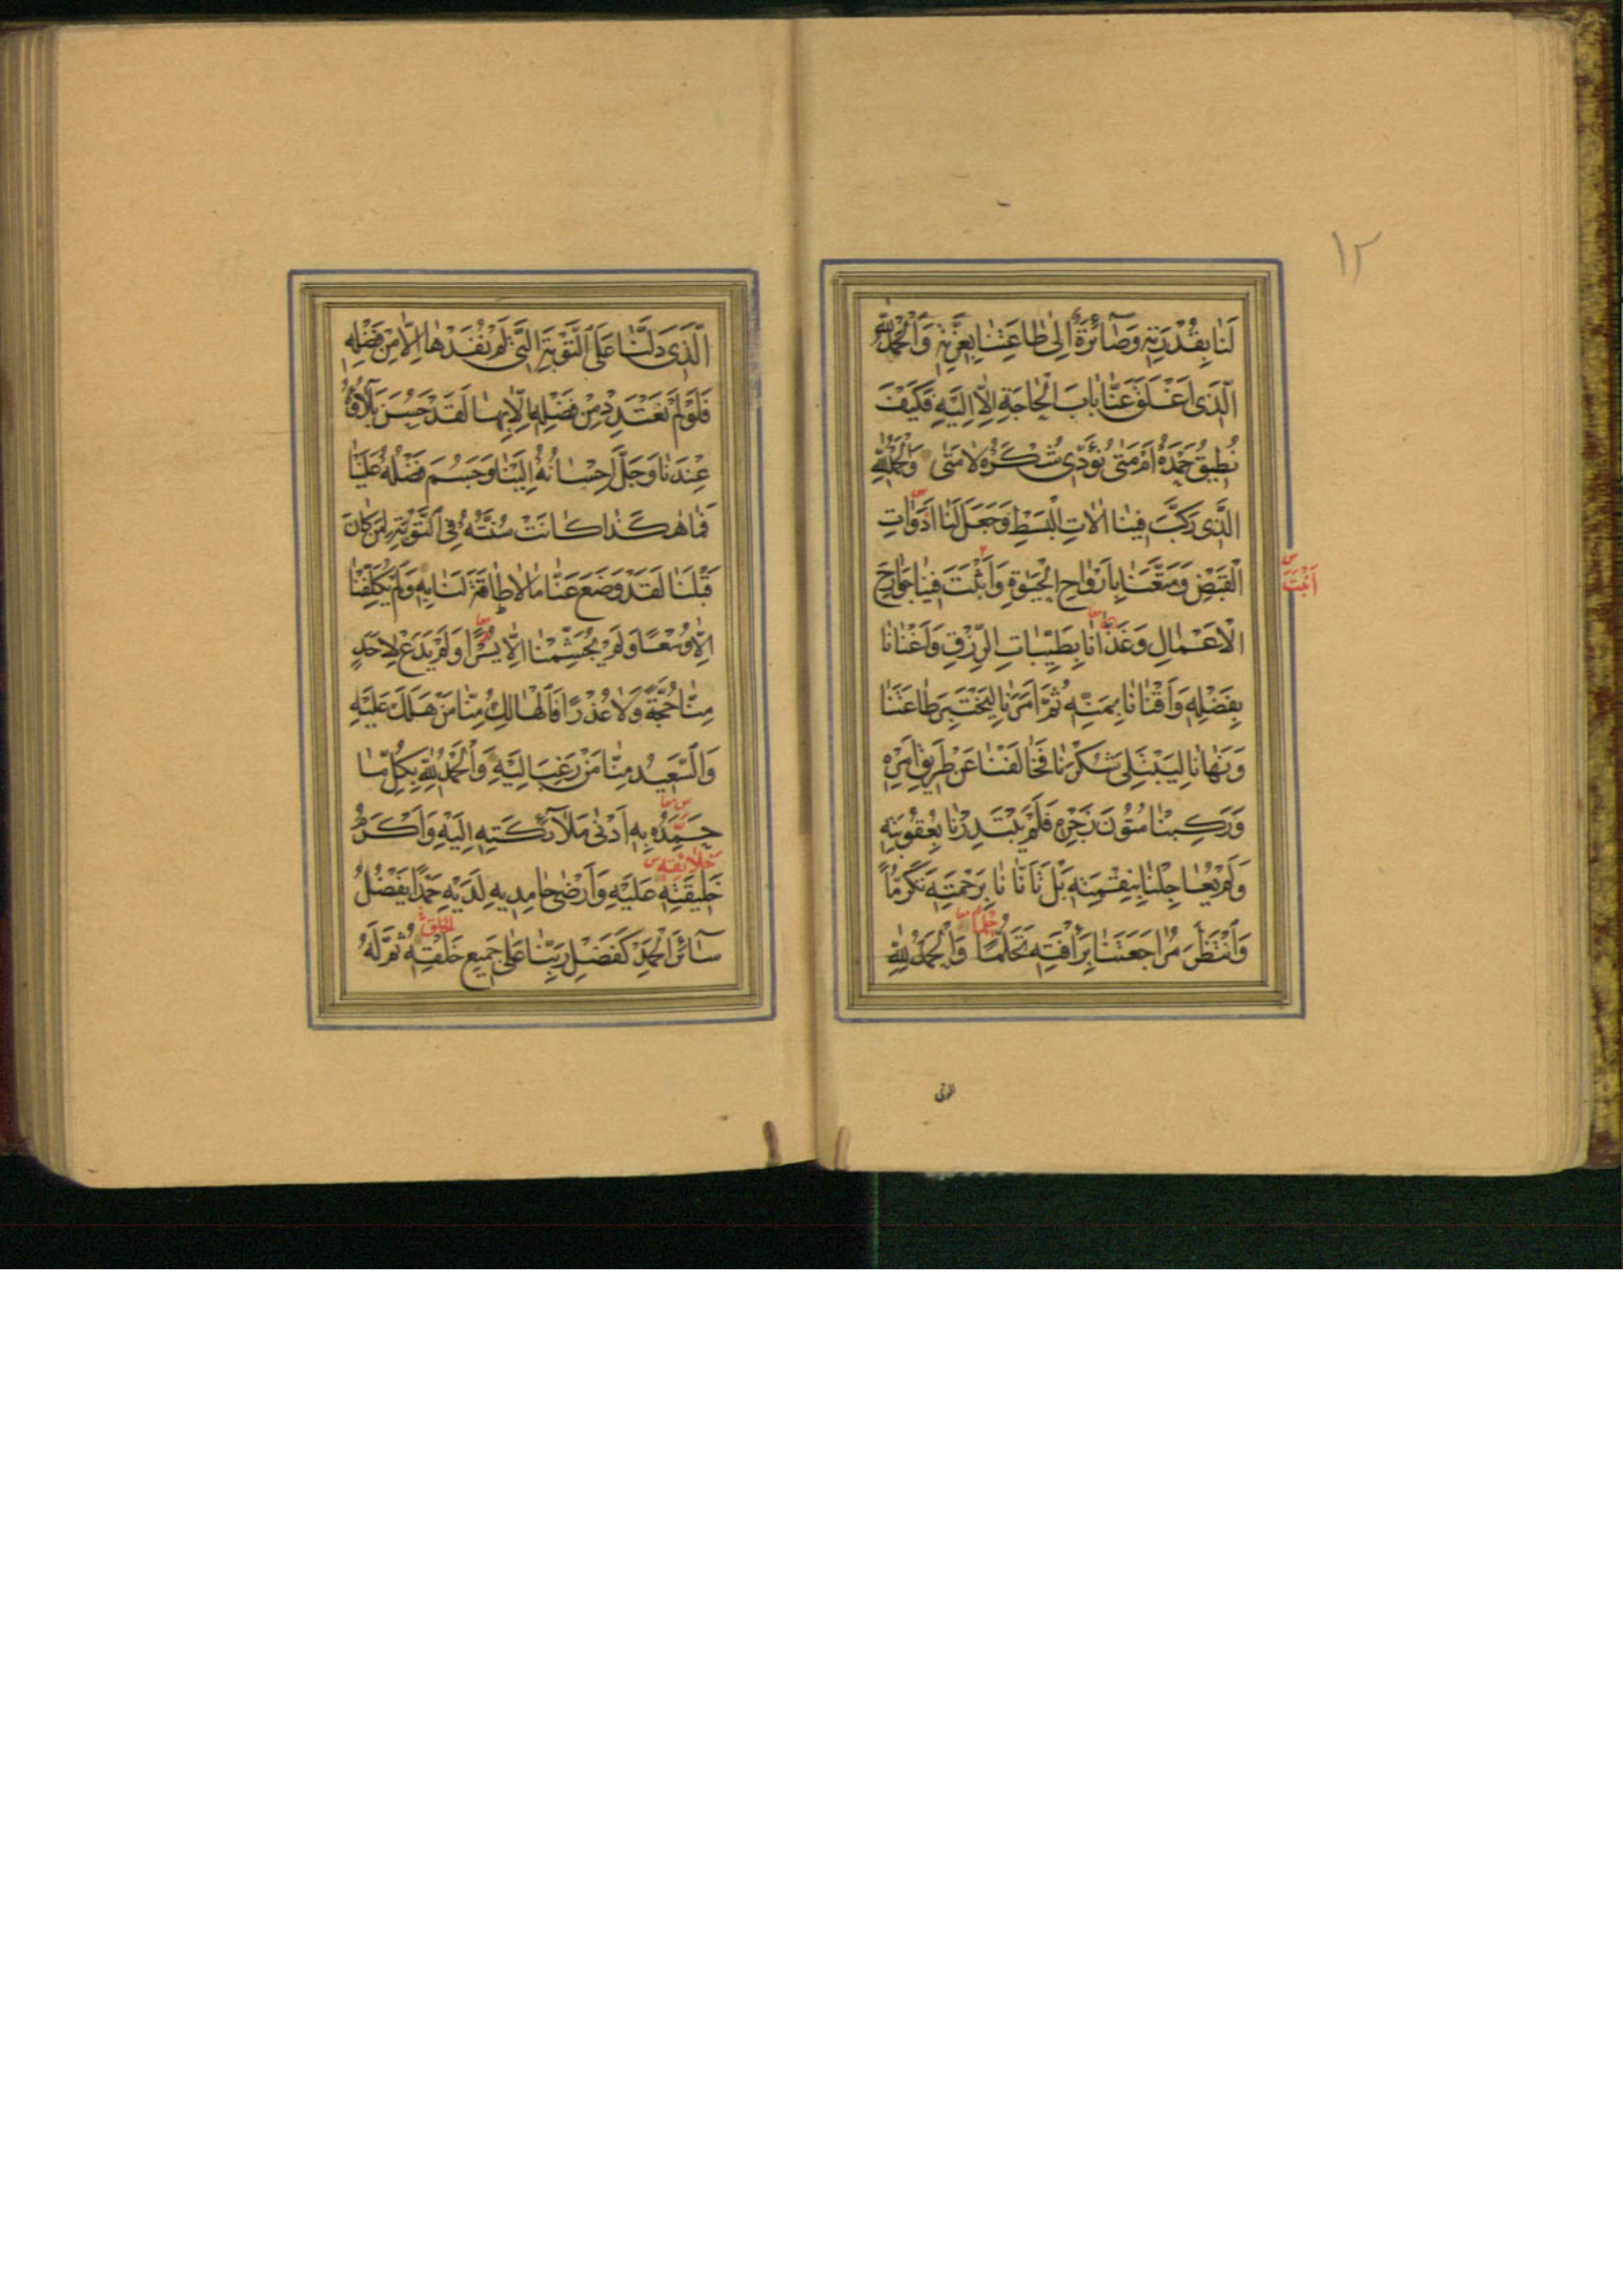 ١٢
لَنَا بِقُدْرَتِهِ وَصَآئِرَةٌ اِلىٰ طَاعَتِنَا بِعِزَّتِهِ وَالْحَمْدُ لِلّٰهِ
الَّذِى اَغْلَقَ عَنَّا بَابَ الْحَاجَةِ اِلَّا اِلَيْهِ فَكَيْفَ
نُطِيقُ حَمْدَهُ اَمْ مَتىٰ نُؤَدِّى شُكْرَهُ لَا مَتىٰ وَالْحَمْدُ لِلّٰهِ
الَّذِى رَكَّبَ فِينَا اٰلَاتِ الْبَسْطِ وَجَعَلَ لَنَا اَدَوَاتِ
الْقَبْضِ وَمَتَّعَنَا بِاَرْوَاحِ الْحَيٰوةِ وَاَثْبَتَ فِينَا جَوَارِحَ
الْاَعْمَالِ وَغَذَّانَا بِطَيِّبَاتِ الرِّزْقِ وَاَغْنَانَا
بِفَضْلِهِ وَاَقْنَانَا بِمَنِّهِ ثُمَّ اَمَرَنَا لِيَخْتَبِرَ طَاعَتَنَا
وَنَهَانَا لِيَبْتَلِىَ شُكْرَنَا فَخَالَفْنَا عَنْ طَرِيقِ اَمْرِهِ
وَرَكِبْنَا مُتُونَ زَجْرِهِ فَلَمْ يَبْتَدِرْنَا بِعُقُوبَتِهِ
وَلَمْ يُعَاجِلْنَا بِنِقْمَتِهِ بَلْ تَاَنَّانَا بِرَحْمَتِهِ تَكَرُّمًا
حِلْمًا
وَانْتَظَرَ مُرَاجَعَتَنَا بِرَأْفَتِهِ تَحَلُّمًا وَالْحَمْدُ لِلّٰهِ
الَّذِى دَلَّنَا عَلَى التَّوْبَةِ الَّتِى لَمْ نُفِدْهَا اِلَّا مِنْ فَضْلِهِ
فَلَوْ لَمْ نَعْتَدِدْ مِنْ فَضْلِهِ اِلَّا بِهَا لَقَدْ حَسُنَ بَلَآؤُهُ
عِنْدَنَا وَجَلَّ اِحْسَانُهُ اِلَيْنَا وَجَسُمَ فَضْلُهُ عَلَيْنَا
فَمَا هٰكَذَا كَانَتْ سُنَّتُهُ فِى التَّوْبَةِ لِمَنْ كَانَ
قَبْلَنَا لَقَدْ وَضَعَ عَنَّا مَا لَا طَاقَةَ لَنَا بِهِ وَلَمْ يُكَلِّفْنَا
اِلَّا وُسْعًا وَلَمْ يُجَشِّمْنَا اِلَّا يُسْرًا وَلَمْ يَدَعْ لِاَحَدٍ
مِنَّا حُجَّةً وَلَا عُذْرًا فَالْهَالِكُ مِنَّا مَنْ هَلَكَ عَلَيْهِ
وَالسَّعِيدُ مِنَّا مَنْ رَغِبَ اِلَيْهِ وَالْحَمْدُ لِلّٰهِ بِكُلِّ مَا
حَمِدَهُ بِهِ اَدْنىٰ مَلَآئِكَتِهِ اِلَيْهِ وَاَكْرَمُ
خَلَائِقِهِ
خَلِيقَتِهِ عَلَيْهِ وَاَرْضىٰ حَامِدِيهِ لَدَيْهِ حَمْدًا يَفْضُلُ
سَآئِرَ الْحَمْدِ كَفَضْلِ رَبِّنَا عَلىٰ جَمِيعِ خَلْقِهِ ثُمَّ لَهُ